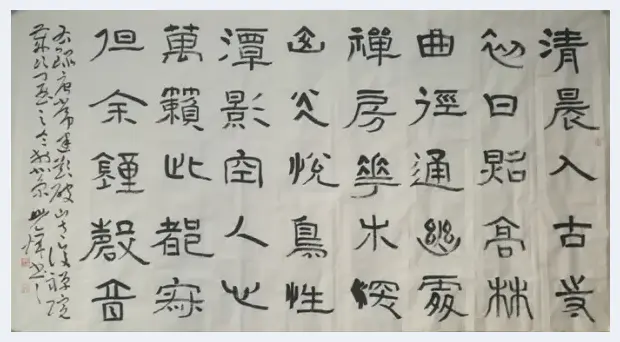 清晨入古寺
初日照高林
曲徑通幽處
禪房華木深
山光悅鳥性
潭影空人心
萬籟此都寂
但余鐘磬音
唐常建題破山寺後禪院